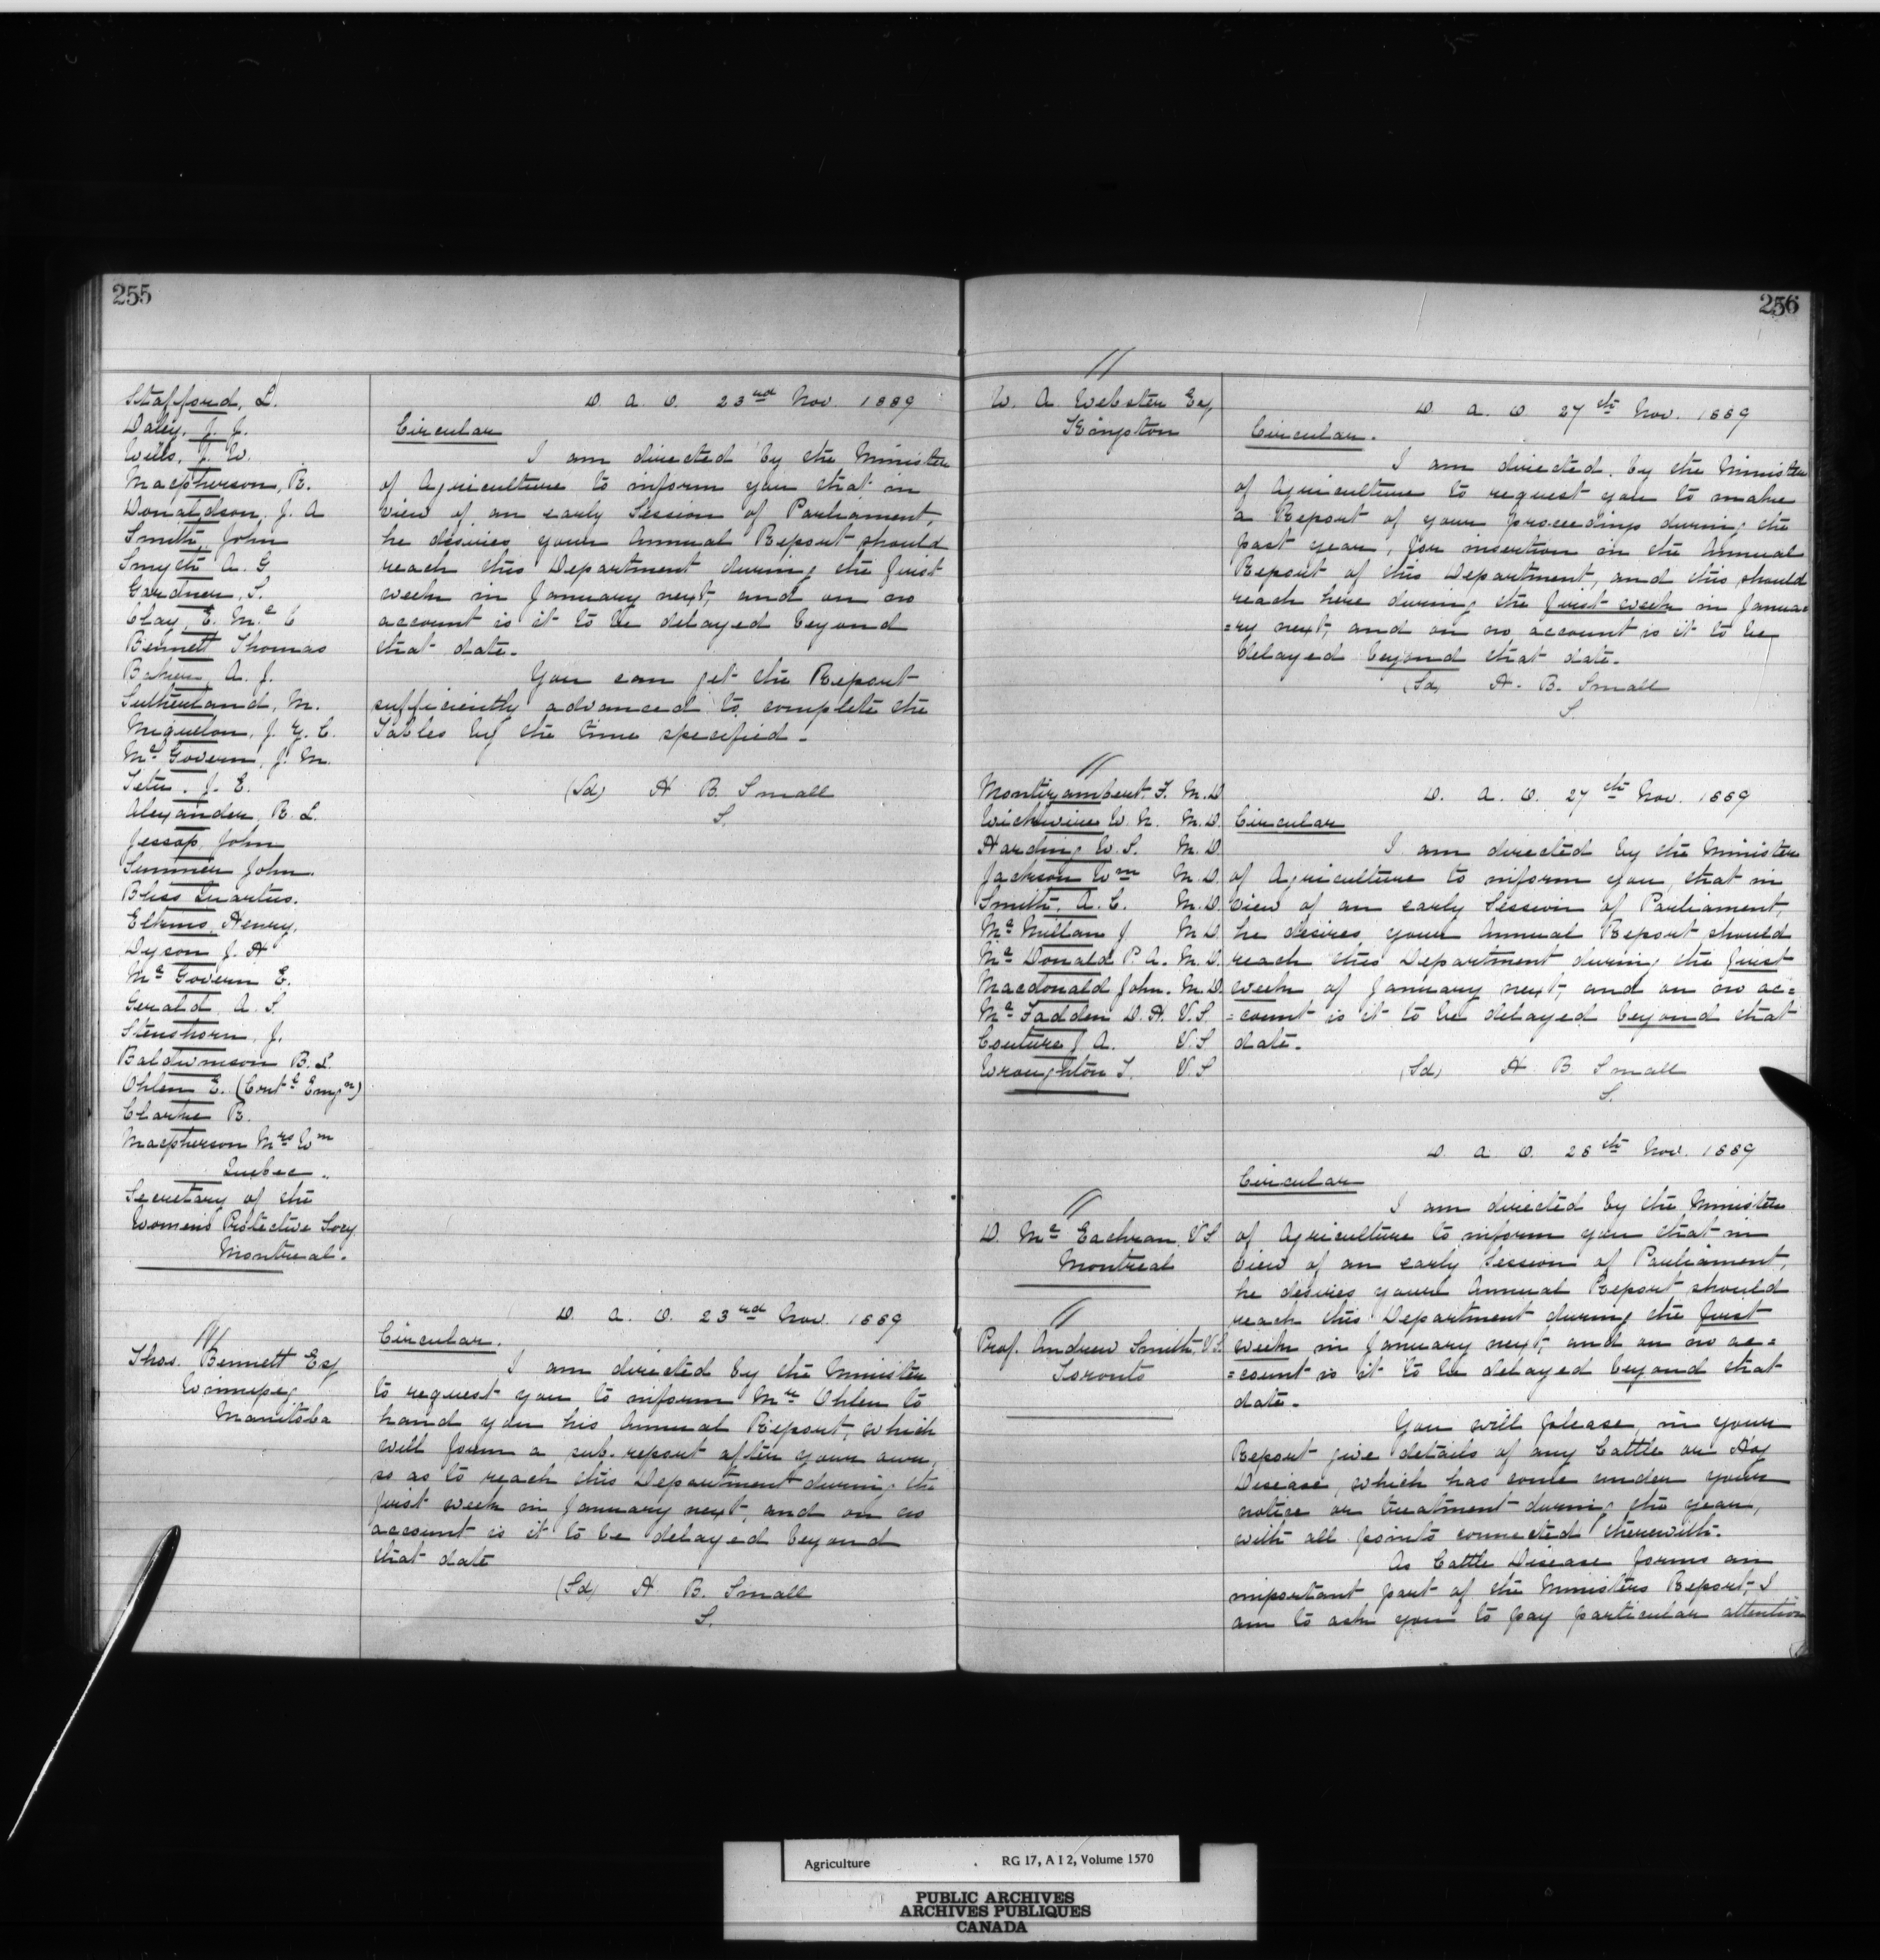 255
Stafford, L.
Daley, J. J.
Wills, J. W.
Macpherson, R.
Donaldson, J. A
Smith, John
Smyth A. G
Gardner, S.
Clay, E. Mc C
Bennett Thomas
Baker, A. J.
Sutherland, M.
Miquelon, J. Z. C.
Mc Govern, J. M.
Tetu, J. E.
Alexander, R. L.
Jessop, John
Sumner John.
Bliss Quartus.
Elkins, Henry.
Dyson J. H
Mc Govern E.
Gerald A. S.
Stenshorn, J.
Baldwinson B. L.
Ohlen E. (Contl Emgn)
Clarke R.
Macpherson Mrs Wm
Quebec.
Secretary of the
Women's Protective Socy
Montreal.
D. A. O. 23rd Nov. 1889
Circular
I am directed by the Minister
of Agriculture to inform you that in
view of an early Session of Parliament,
he desires your Annual Report should
reach this Department during the first
week in January next, and on no
account is it to be delayed beyond
that date.
You can get the Report
sufficiently advanced to complete the
Tables by the time specified.
(Sd) H B. Small
S.
Thos. Bennett Esq
Winnipeg
Manitoba
D. A. O. 23rd Nov. 1889
Circular.
I am directed by the Minister
to request you to inform Mr Ohlen to
hand you his Annual Report, which
will form a sub. report after your own,
so as to reach this Department during the
first week in January next, and on no
account is it to be delayed beyond
that date
(Sd) H B. Small
S.
256
W. A. Webster Esq,
Kingston
D. A. O. 27th Nov. 1889
Circular.
I am directed by the Minister
of Agriculture to request you to make
a Report of your proceedings during the
past year, for insertion in the Annual
Report of this Department, and this should
reach here during the first week in Janua=
=ry next, and on no account is it to be
delayed beyond that date.
(Sd) H. B. Small
S.
Montizambert, F. M. D
Wickwire W. N. M. D.
Harding W. S. M. D.
Jackson Wm M. D.
Smith, A. C. M. D.
Mc Millan J M D.
Mc Donald P A. M. D.
Macdonald John. M. D.
Mc Fadden D. H. V. S.
Couture J. A. V. S
Wroughton T. V. S
D. A. O. 27th Nov. 1889
Circular
I am directed by the Minister
of Agriculture to inform you, that in
view of an early Session of Parliament,
he desires your Annual Report should
reach this Department during the first
week of January next, and on no ac=
=count is it to be delayed beyond that
date.
(Sd) H B. Small
S.
D. Mc Eachran, V S
Montreal
Prof. Andrew Smith, V S.
Toronto
D. A. O. 28th Nov. 1889
Circular
I am directed by the Minister
of Agriculture to inform you that in
view of an early Session of Parliament,
he desires your Annual Report should
reach this Department during the first
week in January next, and on no ac=
=count is it to be delayed beyond that
date.
You will please, in your
Report give details of any Cattle or Hog
Disease, which has come under your
notice or treatment during the year,
with all points connected therewith.
As Cattle Disease forms an
important part of the Ministers Report, I
am to ask you to pay particular attention
Agriculture RG 17, A I 2, Volume 1570
PUBLIC ARCHIVES
ARCHIVES PUBLIQUES
CANADA